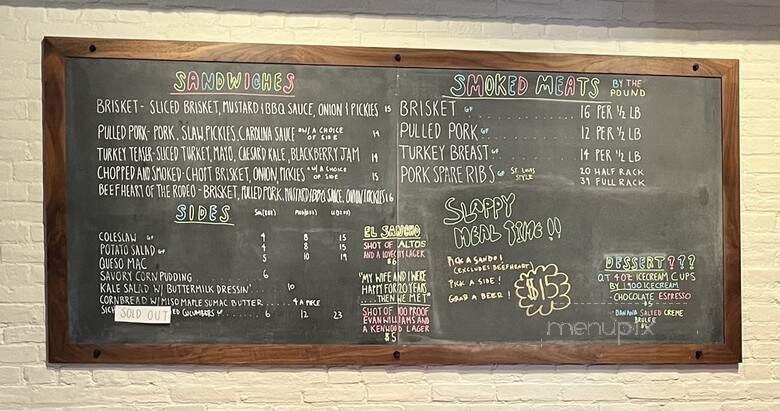 SANDWICHES
BRISKET - SLICED BRISKET, MUSTARD & BBQ SAUCE, ONION & PICKLES 15
PULLED PORK - PORK, SLAW, PICKLES, CAROLINA SAUCE W/ A CHOICE OF SIDE 14
TURKEY TEASER - SLICED TURKEY, MAYO, CAESARD KALE, BLACKBERRY JAM 14
CHOPPED AND SMOKED - CHOPT BRISKET, ONION, PICKLES W/ A CHOICE OF SIDE 15
BEEFHEART OF THE RODEO - BRISKET, PULLED PORK, MUSTARD & BBQ SAUCE, ONION & PICKLES 16
SIDES
COLESLAW GF 4 8 15
POTATO SALAD GF 4 8 15
QUESO MAC 5 10 19
SAVORY CORN PUDDING 6
KALE SALAD W/ BUTTERMILK DRESSIN' 10
CORNBREAD W/ MISO MAPLE SUMAC BUTTER 4 A PIECE
SOLD OUT CUCUMBERS 6 12 23
EL SANCHO
SHOT OF ALTOS
AND A LOVECITY LAGER
$6
"MY WIFE AND I WERE
HAPPY FOR 20 YEARS
...THEN WE MET"
SHOT OF 100 PROOF
EVAN WILLIAMS AND
A KENWOOD LAGER
$5
SMOKED MEATS BY THE POUND
BRISKET GF 16 PER ½ LB
PULLED PORK GF 12 PER ½ LB
TURKEY BREAST GF 14 PER ½ LB
PORK SPARE RIBS GF ST. LOUIS STYLE 20 HALF RACK
39 FULL RACK
SLOPPY
MEAL TIME!!
PICK A SANDO!
(EXCLUDES BEEFHEART)
PICK A SIDE!
GRAB A BEER!
$15
DESSERT???
4 OZ ICECREAM CUPS
BY 1900 ICECREAM
CHOCOLATE ESPRESSO
$5
BANANA SALTED CREME
BRULEE
menupix